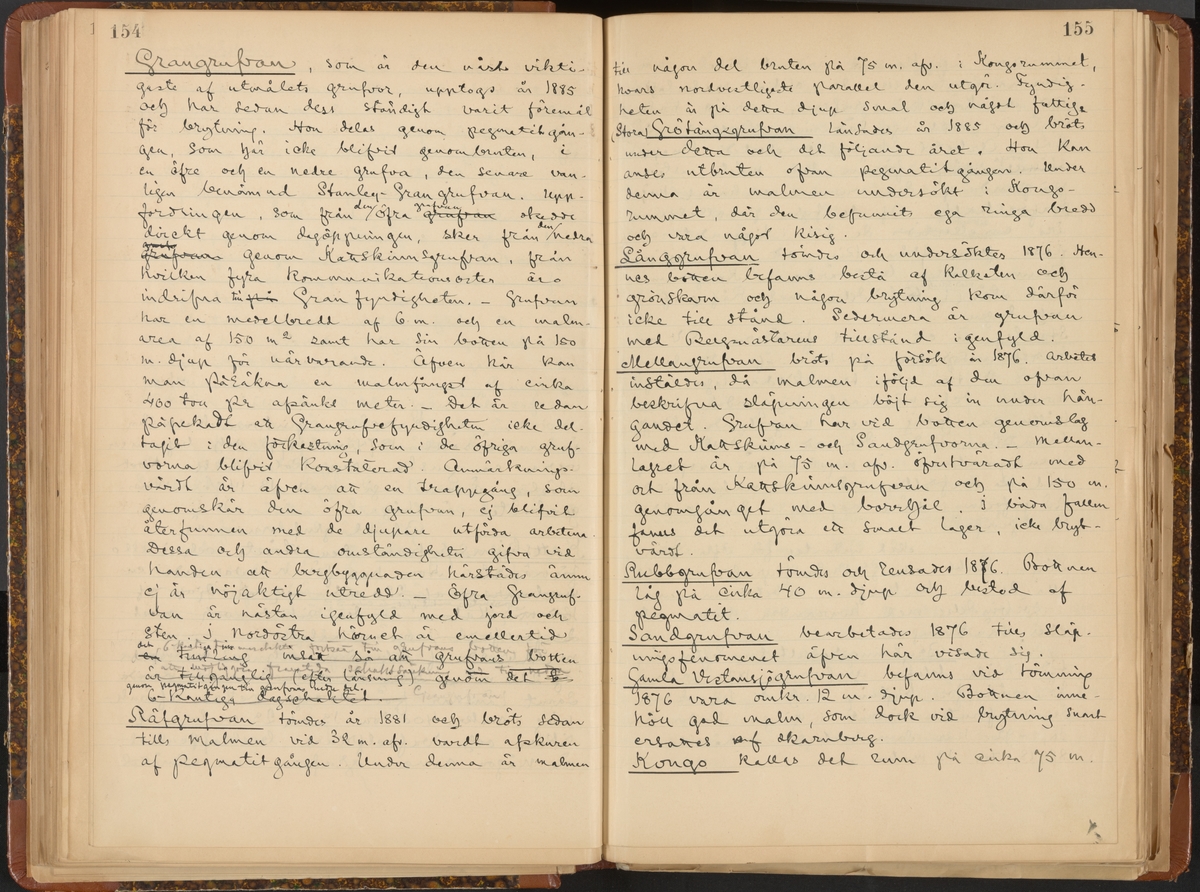 154
Grangrufvan, som är den näst vikti-
gaste af utmålets grufvor, upptogs år 1885
och har sedan dess ständigt varit föremål
för brytning. Hon delas genom pegmatitgån-
gen, som här icke blifvit genombruten, i
en öfre och en nedre grufva, den senare van-
ligen benämnd Stanley-Grangrufvan. Upp-
fordringen, som från den öfra grufvan skedde
direkt genom dagöppningen, sker från den nedra
grufvan genom Kattskinnsgrufvan, från
hvilken fyra kommunikationsorter äro
indrifna till Granfyndigheten. — Grufvan
har en medelbredd af 6 m. och en malm-
area af 150 m² samt har sin botten på 150
m. djup för närvarande. Äfven här kan
man påräkna en malmfångst af cirka
400 ton pr afsänkt meter. — Det är redan
påpekadt att Grangrufvefyndigheten icke del-
tagit i den förkastning, som i de öfriga gruf-
vorna blifvit konstaterad. Anmärknings-
värdt är äfven att en trappgång, som
genomskär den öfra grufvan, ej blifvit
återfunnen med de djupare utförda arbetena.
Dessa och andra omständigheter gifva vid
handen att bergbyggnaden härstädes ännu
ej är nöjaktigt utredd. — Öfra Grangruf-
van är nästan igenfyld med jord och
sten. I nordöstra hörnet är emellertid
timring insatt så att grufvans botten
är tillgänglig (efter länsning) genom det
genom pegmatitgången till grufvans nedre del.
6-kantiga dagschaktet.
Räfgrufvan tömdes år 1881 och bröts sedan
tills malmen vid 32 m. afv. vardt afskuren
af pegmatitgången. Under denna är malmen
155
till någon del bruten på 75 m. afv. i Kongsrummet,
hvars nordvestligaste parallel den utgör. Fyndig-
heten är på detta djup smal och något fattig.
(Stora) Grötängsgrufvan länsades år 1885 och bröts
under detta och det följande året. Hon kan
anses utbruten ofvan pegmatitgången. Under
denna är malmen undersökt i Kongs-
rummet, där den befunnits ega ringa bredd
och vara något kisig.
Långgrufvan tömdes och undersöktes 1876. Hen-
nes botten befanns bestå af kalksten och
grönskarn och någon brytning kom därför
icke till stånd. Sedermera är grufvan
med Bergmästarens tillstånd igenfyld.
Mellangrufvan bröts på försök år 1876. Arbetet
instäldes, då malmen iföljd af den ofvan
beskrifna släpningen böjt sig in under hän-
gandet. Grufvan har vid botten genomslag
med Kattskinns- och Sandgrufvorna. — Mellan-
lagret är på 75 m. afv. öfvertväradt med
ort från Kattskinnsgrufvan och på 150 m.
genomgånget med borrhål. I båda fallen
fanns det utgöra ett smalt lager, icke bryt-
värdt.
Rubbgrufvan tömdes och rensades 1876. Bottnen
låg på cirka 40 m. djup och bestod af
pegmatit.
Sandgrufvan bearbetades 1876 tills släp-
ningsfenomenet äfven här visade sig.
Gamla Vestansjögrufvan befanns vid tömning
1876 vara omkr. 12 m. djup. Bottnen inne-
höll god malm, som dock vid brytning snart
ersattes af skarnberg.
Kongs kallas det rum på cirka 75 m.